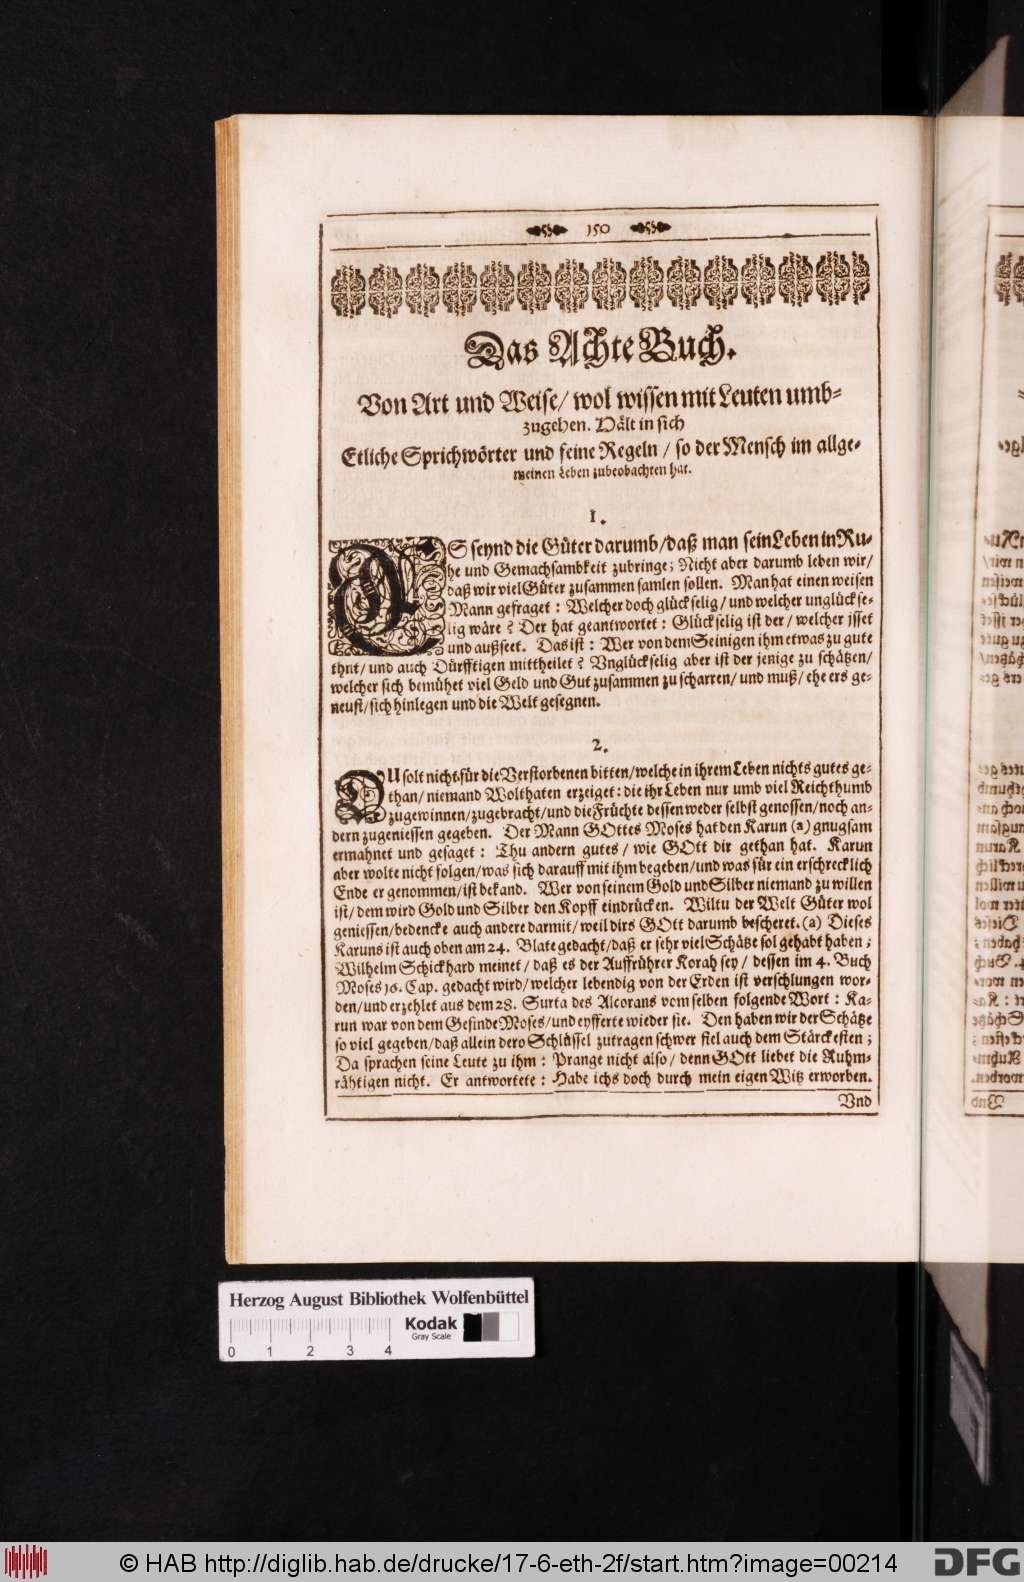 150
Das Achte Buch.
Von Art und Weise/ wol wissen mit Leuten umb-
zugehen. Hält in sich
Etliche Sprichwörter und feine Regeln / so der Mensch im allge-
meinen Leben zubeobachten hat.
1.
ES seynd die Güter darumb/daß man sein Leben in Ru-
he und Gemachsambkeit zubringe; Nicht aber darumb leben wir/
daß wir viel Güter zusammen samlen sollen. Man hat einen weisen
Mann gefraget : Welcher doch glückselig / und welcher unglückse-
lig wäre ? Der hat geantwortet : Glückselig ist der / welcher isset
und außseet. Das ist : Wer von dem Seinigen ihm etwas zu gute
thut/ und auch Dürfftigen mittheilet ? Unglückselig aber ist der jenige zu schätzen/
welcher sich bemühet viel Geld und Gut zusammen zu scharren/ und muß/ ehe ers ge-
neust/ sich hinlegen und die Welt gesegnen.
2.
DU solt nicht für die Verstorbenen bitten/welche in ihrem Leben nichts gutes ge-
than/ niemand Wolthaten erzeiget: die ihr Leben nur umb viel Reichthumb
zugewinnen/ zugebracht/ und die Früchte dessen weder selbst genossen/ noch an-
dern zugeniessen gegeben. Der Mann GOttes Moses hat den Karun (a) gnugsam
ermahnet und gesaget : Thu andern gutes / wie GOtt dir gethan hat. Karun
aber wolte nicht folgen/ was sich darauff mit ihm begeben/ und was für ein erschrecklich
Ende er genommen/ ist bekand. Wer von seinem Gold und Silber niemand zu willen
ist/ dem wird Gold und Silber den Kopff eindrücken. Wiltu der Welt Güter wol
geniessen/ bedencke auch andere darmit/ weil dirs GOtt darumb bescheret. (a) Dieses
Karuns ist auch oben am 24. Blate gedacht/ daß er sehr viel Schätze sol gehabt haben ;
Wilhelm Schickhard meinet / daß es der Auffrührer Korah sey / dessen im 4. Buch
Moses 16. Cap. gedacht wird/ welcher lebendig von der Erden ist verschlungen wor-
den/ und erzehlet aus dem 28. Surta des Alcorans vom selben folgende Wort : Ka-
run war von dem Gesinde Moses/ und eyfferte wieder sie. Den haben wir der Schätze
so viel gegeben/ daß allein dero Schlüssel zutragen schwer fiel auch dem Stärckesten ;
Da sprachen seine Leute zu ihm : Prange nicht also / denn GOtt liebet die Ruhm-
rähtigen nicht. Er antwortete : Habe ichs doch durch mein eigen Witz erworben.
Und
Herzog August Bibliothek Wolfenbüttel
Kodak
Gray Scale
0 1 2 3 4
© HAB http://diglib.hab.de/drucke/17-6-eth-2f/start.htm?image=00214
DFG